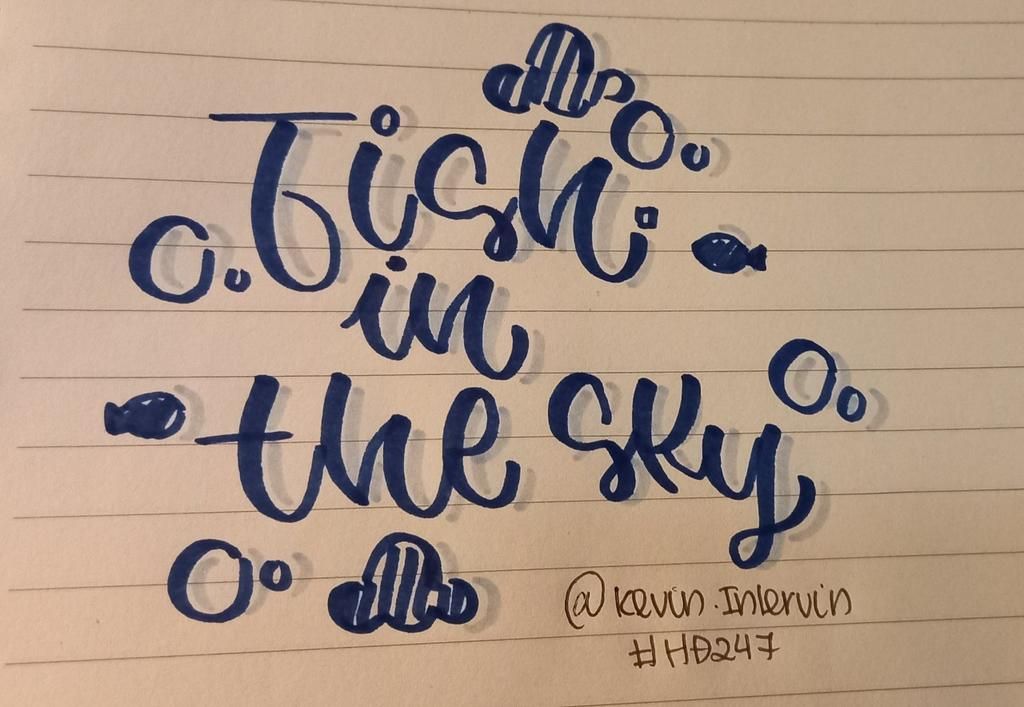 Fish
in
the sky
@kevin.Inlervin
#HD247